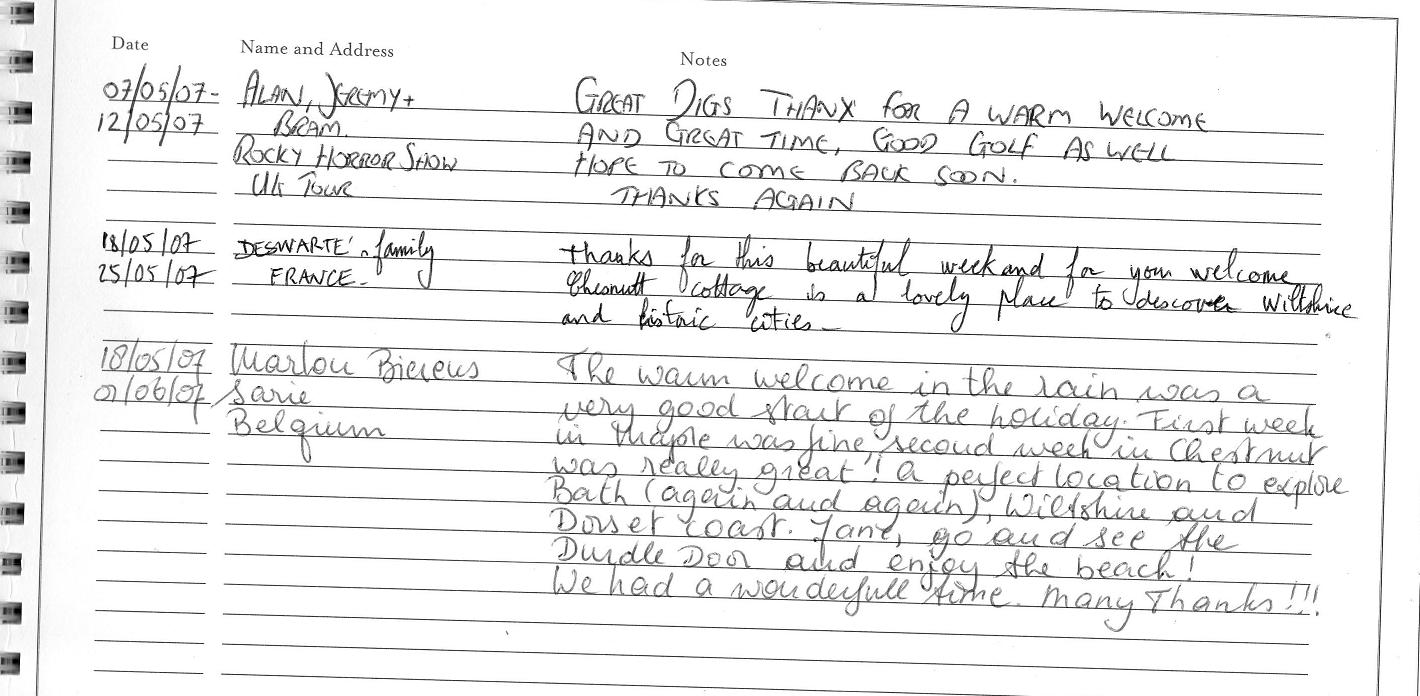 Date Name and Address Notes
07/05/07- ALAN, JEREMY + GREAT DIGS THANX FOR A WARM WELCOME
12/05/07 BRAM. AND GREAT TIME, GOOD GOLF AS WELL
ROCKY HORROR SHOW HOPE TO COME BACK SOON.
UK TOUR THANKS AGAIN
18/05/07 DESWARTE family thanks for this beautiful week and for your welcome
25/05/07 FRANCE- Chesnutt cottage is a lovely place to discover Wiltshire
and historic cities-
18/05/07 Marlou The warm welcome in the rain was a
01/06/07 Sarie very good start of the holiday. First week
Belgium in Maple was fine, second week in Chestnut
was really great!! a perfect location to explore
Bath (again and again), Wiltshire and
Dorset coast. Jane, go and see the
Durdle Door and enjoy the beach!
We had a wonderfull time. Many Thanks!!!